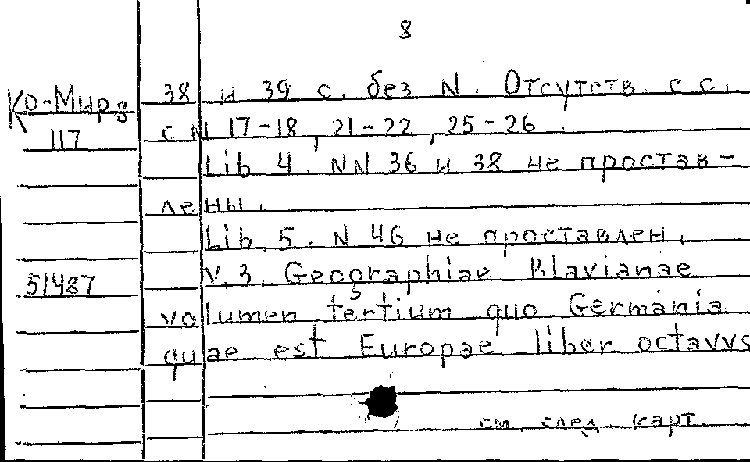 8
Ко-Мир 8 38 и 39 с. без N. Отсутств. с.с.
117 с N 17-18, 21-22, 25-26.
Lib 4. NN 36 и 38 не простав-
лены.
Lib. 5. N 46 не проставлен.
51487 V. 3. Geographiae Blavianae
volumen tertium quo Germania
quae est Europae liber octavvs
см. след. карт.